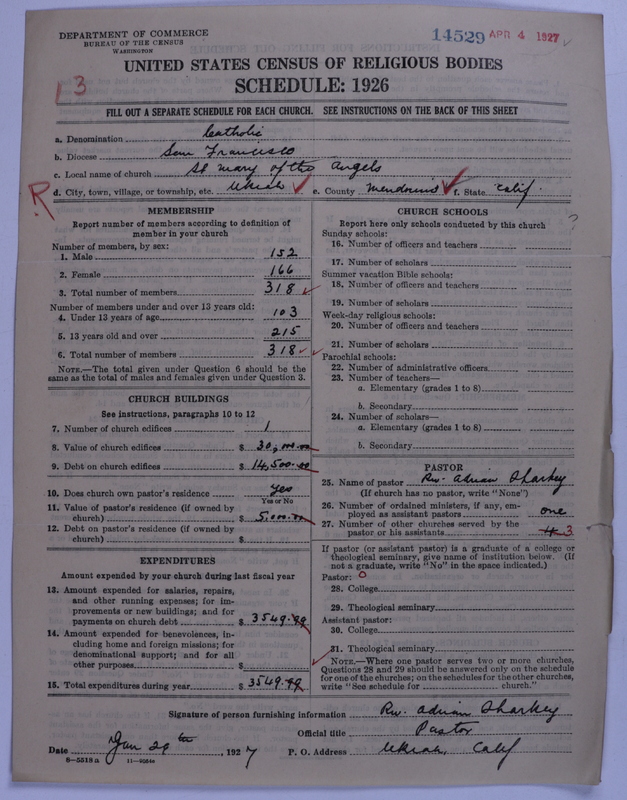 DEPARTMENT OF COMMERCE
BUREAU OF THE CENSUS
WASHINGTON
14529 APR 4 1927
UNITED STATES CENSUS OF RELIGIOUS BODIES
SCHEDULE: 1926
13
FILL OUT A SEPARATE SCHEDULE FOR EACH CHURCH. SEE INSTRUCTIONS ON THE BACK OF THIS SHEET
a. Denomination Catholic
b. Diocese San Francisco
c. Local name of church St Mary of the Angels
R d. City, town, village, or township, etc. Ukiah e. County Mendocino f. State Calif.
MEMBERSHIP
Report number of members according to definition of member in your church
Number of members, by sex:
1. Male 152
2. Female 166
3. Total number of members 318
Number of members under and over 13 years old:
4. Under 13 years of age 103
5. 13 years old and over 215
6. Total number of members 318
NOTE.—The total given under Question 6 should be the same as the total of males and females given under Question 3.
CHURCH BUILDINGS
See instructions, paragraphs 10 to 12
7. Number of church edifices 1
8. Value of church edifices $ 30,000.00
9. Debt on church edifices $ 14,500.00
10. Does church own pastor's residence Yes
Yes or No
11. Value of pastor's residence (if owned by church) $ 5,000.00
12. Debt on pastor's residence (if owned by church) $
EXPENDITURES
Amount expended by your church during last fiscal year
13. Amount expended for salaries, repairs, and other running expenses; for improvements or new buildings; and for payments on church debt $ 3549.99
14. Amount expended for benevolences, including home and foreign missions; for denominational support; and for all other purposes $
15. Total expenditures during year $ 3549.99
CHURCH SCHOOLS
?
Report here only schools conducted by this church
Sunday schools:
16. Number of officers and teachers
17. Number of scholars
Summer vacation Bible schools:
18. Number of officers and teachers
19. Number of scholars
Week-day religious schools:
20. Number of officers and teachers
21. Number of scholars
Parochial schools:
22. Number of administrative officers
23. Number of teachers—
a. Elementary (grades 1 to 8)
b. Secondary
24. Number of scholars—
a. Elementary (grades 1 to 8)
b. Secondary
PASTOR
25. Name of pastor Rev. Adrian Sharkey
(If church has no pastor, write "None")
26. Number of ordained ministers, if any, employed as assistant pastors one
27. Number of other churches served by the pastor or his assistants 4 3
If pastor (or assistant pastor) is a graduate of a college or theological seminary, give name of institution below. (If not a graduate, write "No" in the space indicated.)
Pastor: 0
28. College
29. Theological seminary
Assistant pastor:
30. College
31. Theological seminary
NOTE.—Where one pastor serves two or more churches, Questions 28 and 29 should be answered only on the schedule for one of the churches; on the schedules for the other churches, write "See schedule for church."
Signature of person furnishing information Rev. Adrian Sharkey
Official title Pastor
Date Jan 29th, 1927 P. O. Address Ukiah, Calif
8-5518a 11-9264